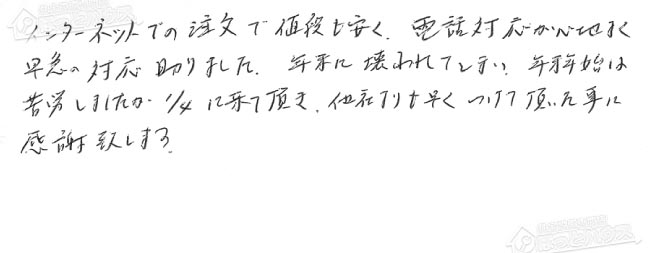 インターネットでの注文で値段も安く、電話対応が心地よく
早急の対応助りました。年末に壊われてしまい、年末年始は
苦労しましたが 1/4 に来て頂き、他社よりも早くつけて頂いた事に
感謝致します。